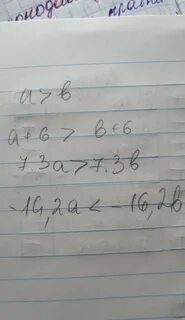 a > b
a + 6 > b + 6
7.3a > 7.3b
-16,2a < -16,2b